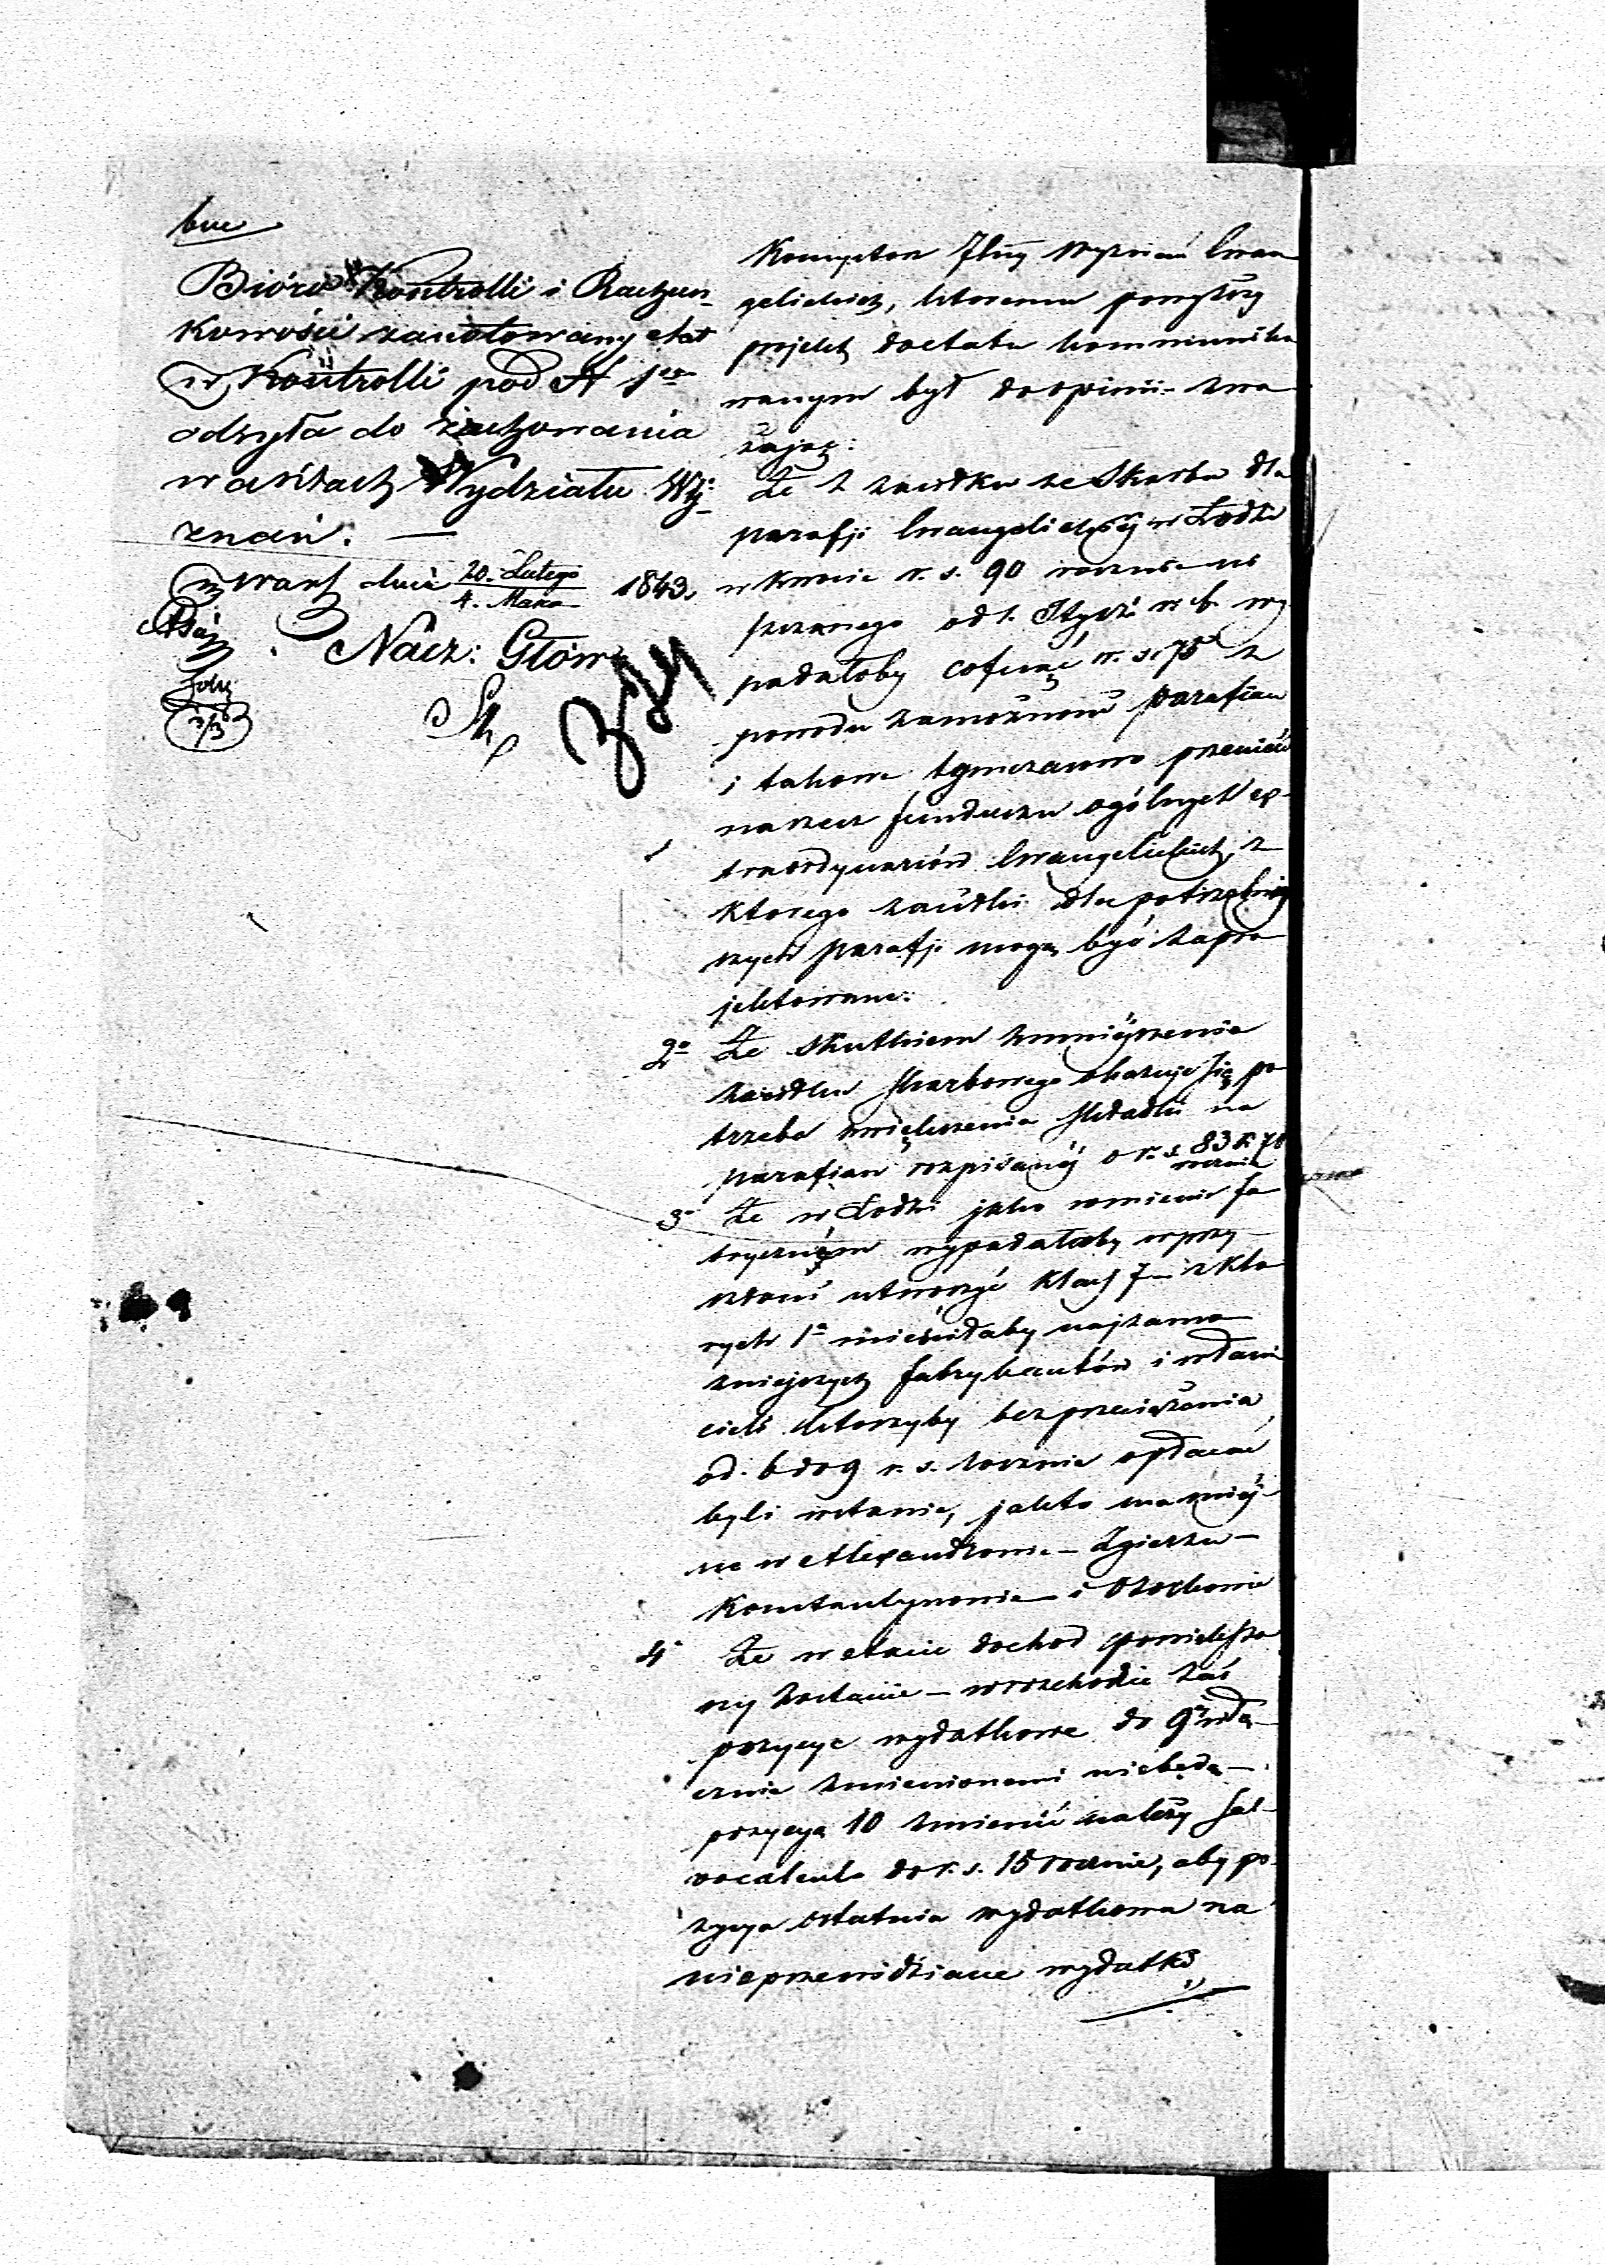 Bióro Kontrolli i Rachun-
kowości zanotowany etat
w Kontrolli pod N
odsyła do zachowania
w aktach Wydziału Wy-
znań. —
w Warsz dnia 20. Lutego / 4. Marca 1843.
Nacz: Głów:
Konsystorz Jlny Wyznań Ewan
gelickich, któremu powyższy
projekt do etatu kommuniko
wanym był do opinii zwa
żając:
Że z zasiłku ze Skarbu dla
parafji Ewangelickiej w Łodzi
w kwocie r. s. 90 rocznie
od 1. Stycz r. b. wy
padałoby cofnąć r. s. 75 z
powodu zamożności parafian
i takowe tymczasowo przenieść
na rzecz funduszu ogólnych ex-
traordynariów Ewangelickich, z
którego zasiłki dla potrzebniej
szych parafji mogą być zapro
jektowane:
2o Że skutkiem zmniejszenia
zasiłku skarbowego okazuje się po
trzeba zwiększenia składki na
parafian rozpisanéj o r. s. 83 k 70
rocznie
3o Że w Łodzi jako mieście fa
bryczném wypadałoby w przy-
szłości utworzyć klass 7 — z któ
rych 1a mieściłaby najzamo
żniejszych fabrykantów i właści
cieli którzyby bez przeciążenia
od 6 do 9 r. s. rocznie opłacać
byli w stanie, jak to ma miéj
sce w Alexandrowie — Zgierzu —
Konstantynowie — i Ozorkowie
4o Że w etacie dochod powiększo
ny zostanie — w rozchodzie zaś
pozycye wydatkowe do 9 włą-
cznie zmienionemi nie będą —
pozycyą 10 zmienić należy sal-
vo calculo do r. s. 15 rocznie, aby po
zycya ostatnia wydatkowa na
nieprzewidziane wydatki